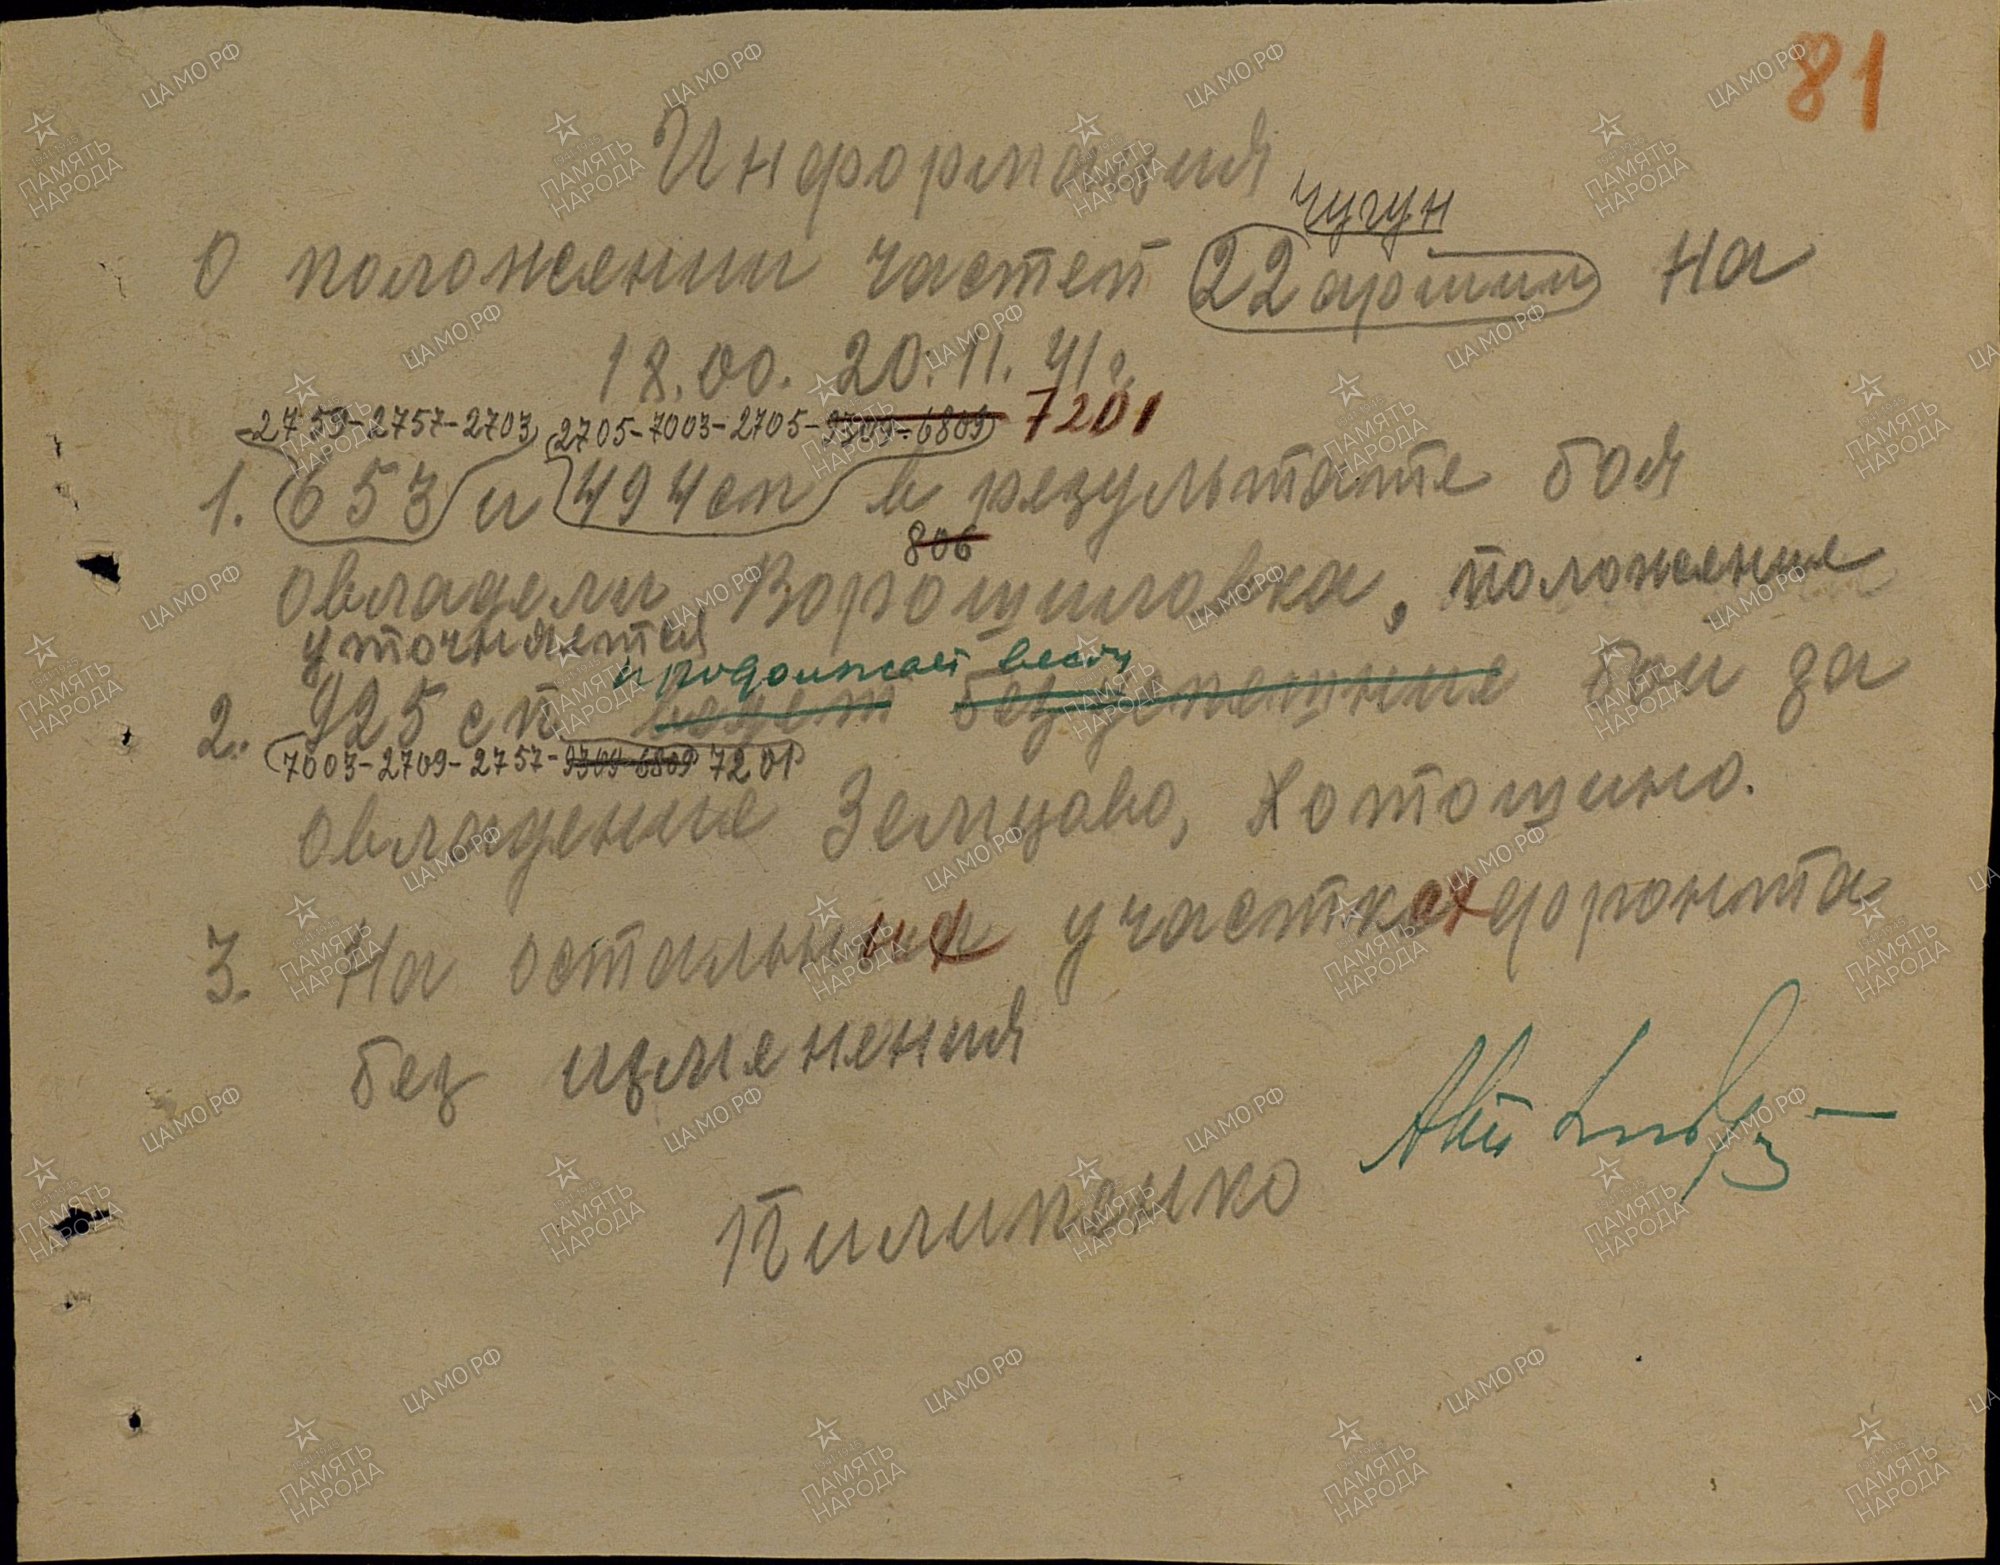 81
Информация
чугун
О положении частей 22 армии на
18.00. 20.11.41г.
2759-2757-2703 2705-7003-2705-9309-6809 7201
1. 653 и 494 сп в результате боя
806
овладели Ворошиловка, положение
уточняется
продолжает вести
2. 925 сп ведет безуспешные бои за
7003-2709-2757-9309-6809 7201
овладение Земцово, Хотошино.
3. На остальных участках фронта
без изменения
Пилипенко